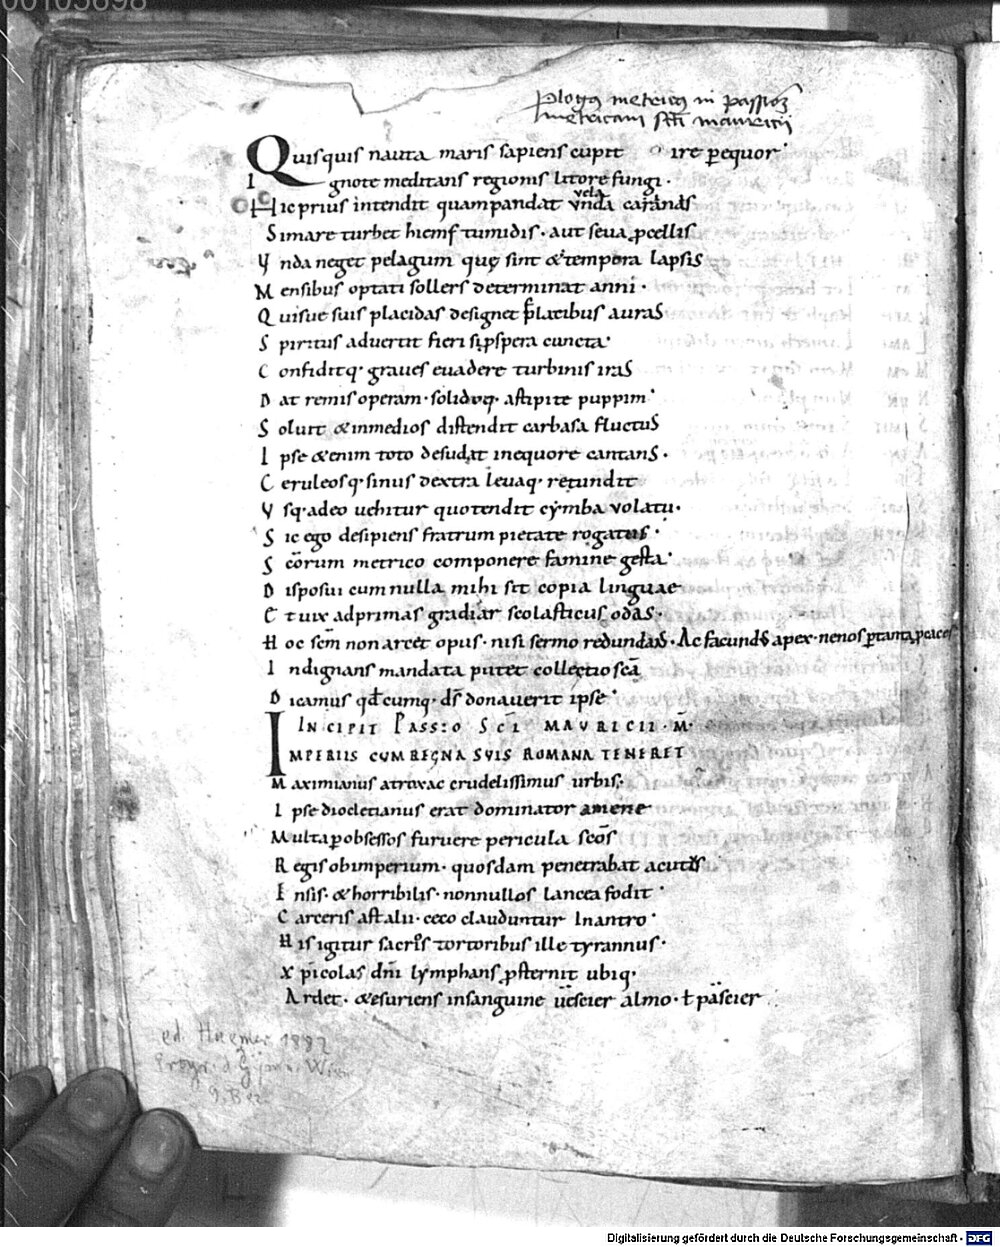 00105698
plogꝰ metricꝰ in passioē
metricam scti mauricij
Quisquis nauta maris sapiens cupit ire pequor·
Ignote meditans regionis litore fungi·
Hic prius intendit quam pandat ynda carinas
vela
Si mare turbet hiems tumidis· aut seua pcellis
Ynda neget pelagum quę sint & tempora lapsis
Mensibus optati sollers determinat anni·
Quisue suis placidas designet flatibus auras
Spiritus aduertit fieri si pspera cuncta·
Confiditq· graues euadere turbinis iras
Dat remis operam· solidoq· a stipite puppim·
Soluit & in medios distendit carbasa fluctus
Ipse & enim toto desudat in equore cantans·
Ceruleosq· sinus dextra leuaq· retundit
Vsq· adeo uehitur quo tendit cymba uolatu·
Sic ego desipiens fratrum pietate rogatus·
Scōrum metrico componere famine gesta·
Disposui cum nulla mihi sit copia linguae
Et uix ad primas gradiar scolasticus odas·
Hoc sem̄ non arcet opus· nisi sermo redundas· Ac facundus apex· nenos ptanta peaces
Indignans mandata putet collectio scā
Dicamus qd cumq· ds̄ donauerit ipse·
INCIPIT PASSIO SCI MAURICII· M̄·
IMPERIIS CUM REGNA SUIS ROMANA TENERET
Maximianus atrox ac crudelissimus urbis·
Ipse diocletianus erat dominator amene
Multa p obsessos furuere pericula scōs
Regis ob imperium· quosdam penetrabat acutus
Ensis· & horribilis· nonnullos lancea fodit·
Carceris ast alii· ceco clauduntur In antro·
His igitur sacris tortoribus ille tyrannus·
Xpicolas dn̄i lymphans psternit ubiq·
Ardet· & esuriens in sanguine uescier almo· ł pascier
ed. Huemer 1882
Progr. d. Gymn. Wien
Digitalisierung gefördert durch die Deutsche Forschungsgemeinschaft - DFG